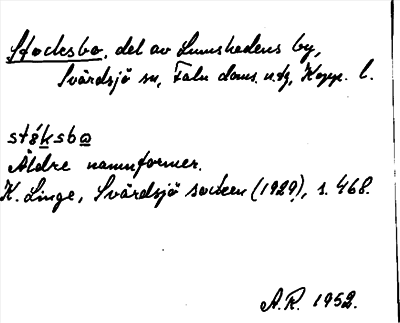 Stocksbo, del av Sunnshedens by,
Svärdsjö sn, Falu doms. n. tg, Kopp. l.
stó̞ksbo̲
Äldre namnformer.
K. Linge, Svärdsjö socken (1929), s. 468.
A.R. 1952.